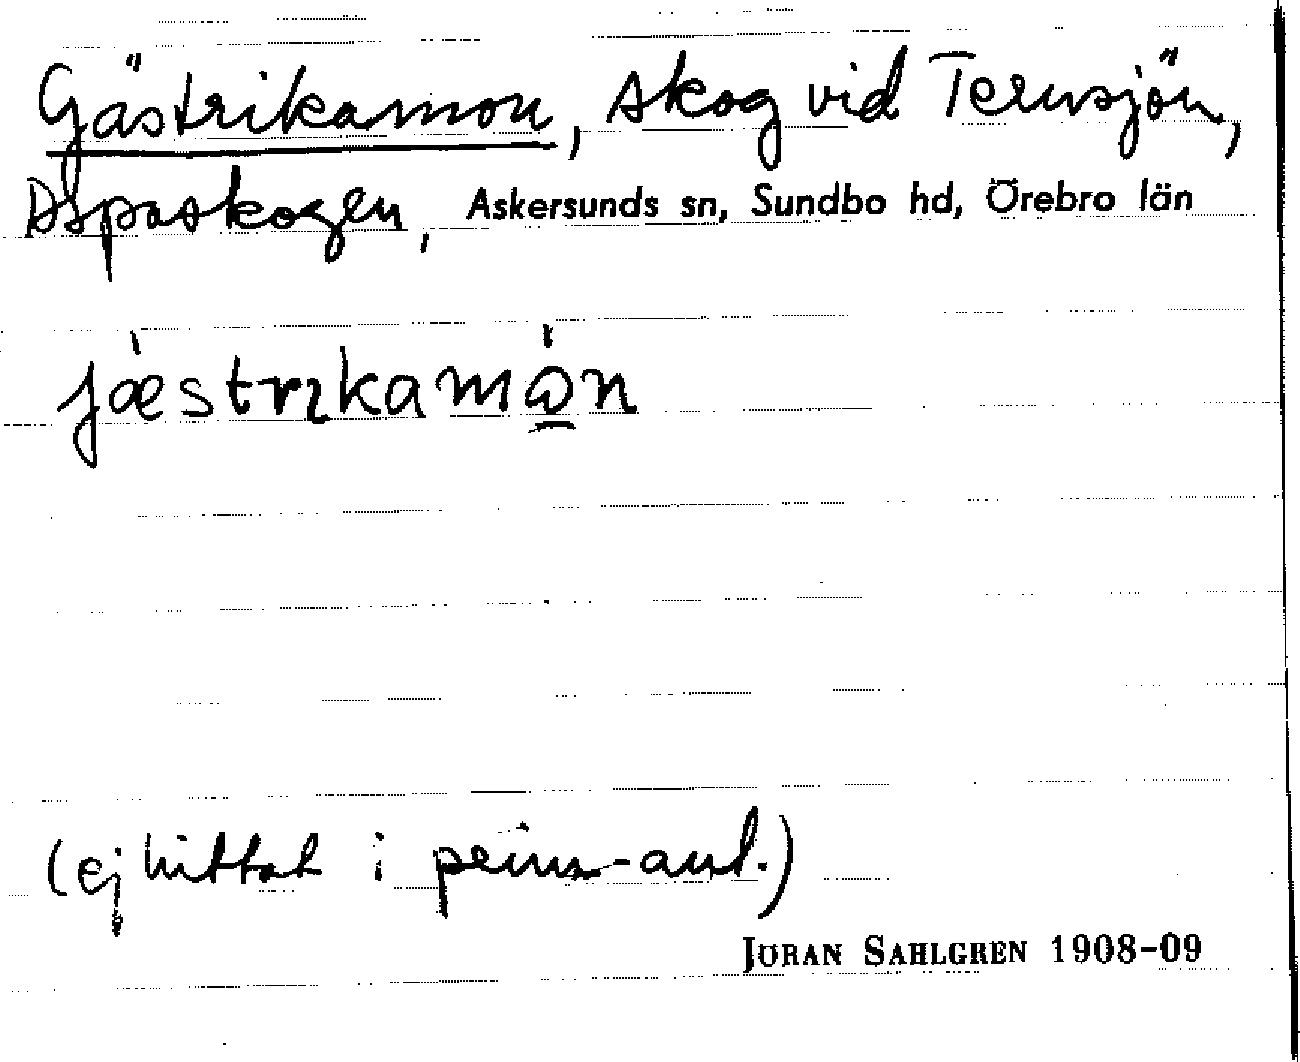 Gästrikamon, skog vid Ternsjön,
Aspaskogen, Askersunds sn, Sundbo hd, Örebro län
jæ̀strɪkamɷ̀n
(ej hittat i prim-ant.)
JÖRAN SAHLGREN 1908-09